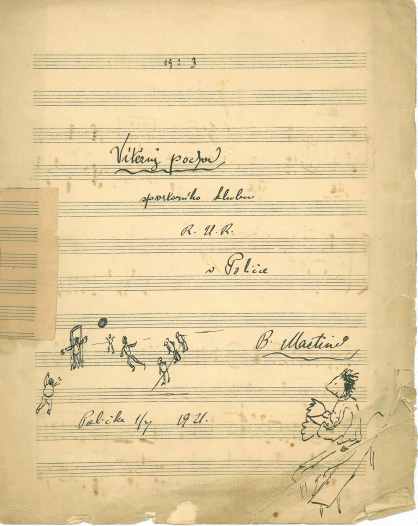 19 : 3
Vítězný pochod
sportovního klubu
R. U. R.
v Poličce
B. Martinů
Polička 1/7 1921.